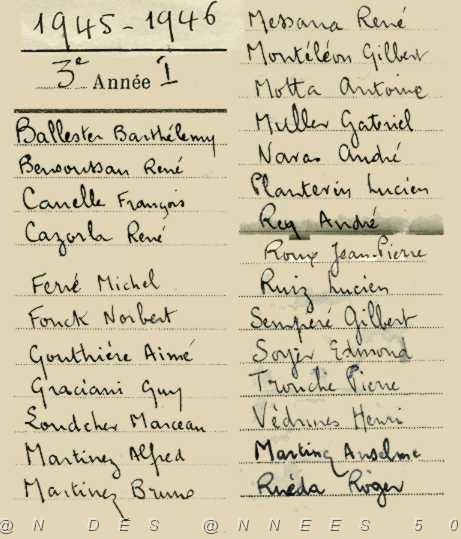 1945-1946
3e Année I
Ballester Barthélemy
Bensoussan René
Canelle François
Cazorla René
Ferré Michel
Fonck Norbert
Gouthière Aimé
Graciani Guy
Loudcher Marceau
Martinez Alfred
Martinez Bruno
Messana René
Montéléon Gilbert
Motta Antoine
Muller Gabriel
Navas André
Planterin Lucien
Rey André
Roux Jean-Pierre
Ruiz Lucien
Semperé Gilbert
Soyer Edmond
Tronche Pierre
Védrines Henri
Martinez Anselme
Ruéda Roger
@ N DES @ N N E E S 5 0